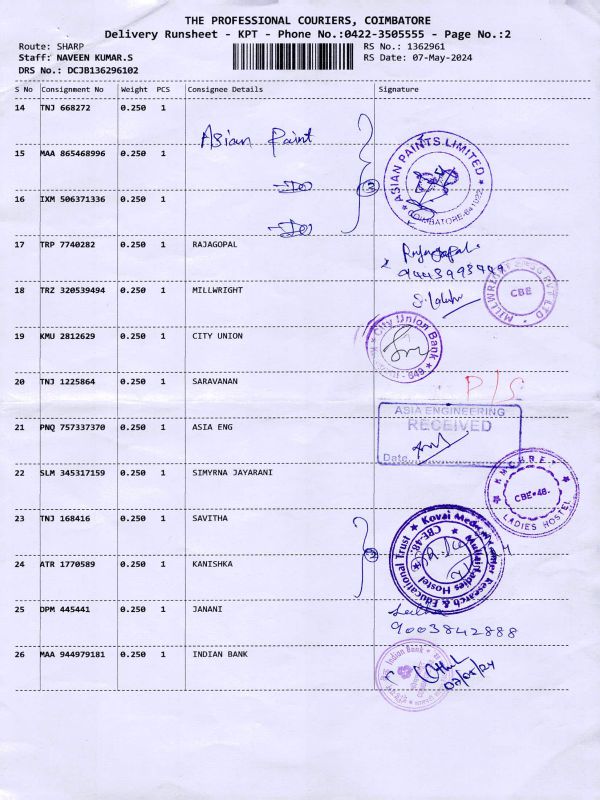 THE PROFESSIONAL COURIERS, COIMBATORE
Delivery Runsheet - KPT - Phone No.:0422-3505555 - Page No.:2
Route: SHARP RS No.: 1362961
Staff: NAVEEN KUMAR.S RS Date: 07-May-2024
DRS No.: DCJB136296102
S No Consignment No Weight PCS Consignee Details Signature
14 TNJ 668272 0.250 1
Asian Paint
15 MAA 865468996 0.250 1
ASIAN PAINTS LIMITED
COIMBATORE-641022
-Do
16 IXM 506371336 0.250 1
-Do
17 TRP 7740282 0.250 1 RAJAGOPAL
Rajagopal
18 TRZ 320539494 0.250 1 MILLWRIGHT
CBE
19 KMU 2812629 0.250 1 CITY UNION
City Union Bank
20 TNJ 1225864 0.250 1 SARAVANAN
P/S
21 PNQ 757337370 0.250 1 ASIA ENG
ASIA ENGINEERING
RECEIVED
Date
22 SLM 345317159 0.250 1 SIMYRNA JAYARANI
CBE-48
LADIES HOSTEL
23 TNJ 168416 0.250 1 SAVITHA
24 ATR 1770589 0.250 1 KANISHKA
25 DPM 445441 0.250 1 JANANI
9003842888
26 MAA 944979181 0.250 1 INDIAN BANK
Indian Bank
07/05/24